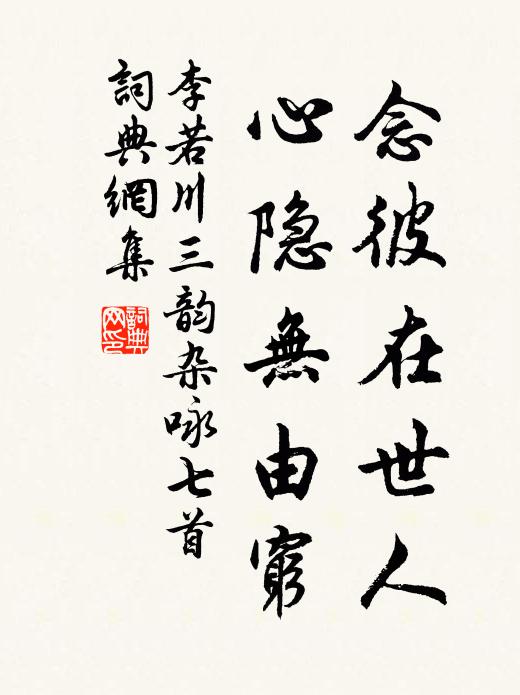 念彼在世人
心隐無由窮
李若川三韵杂咏七首
詞典網集
詞典网印